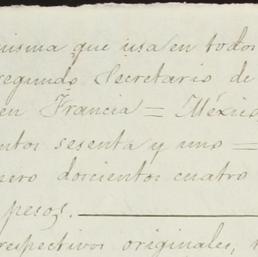 misma que usa en todos
segundo Secretario de
en Francia = México
ntos sesenta y uno =
mero doscientos cuatro
pesos.
respectivos originales,